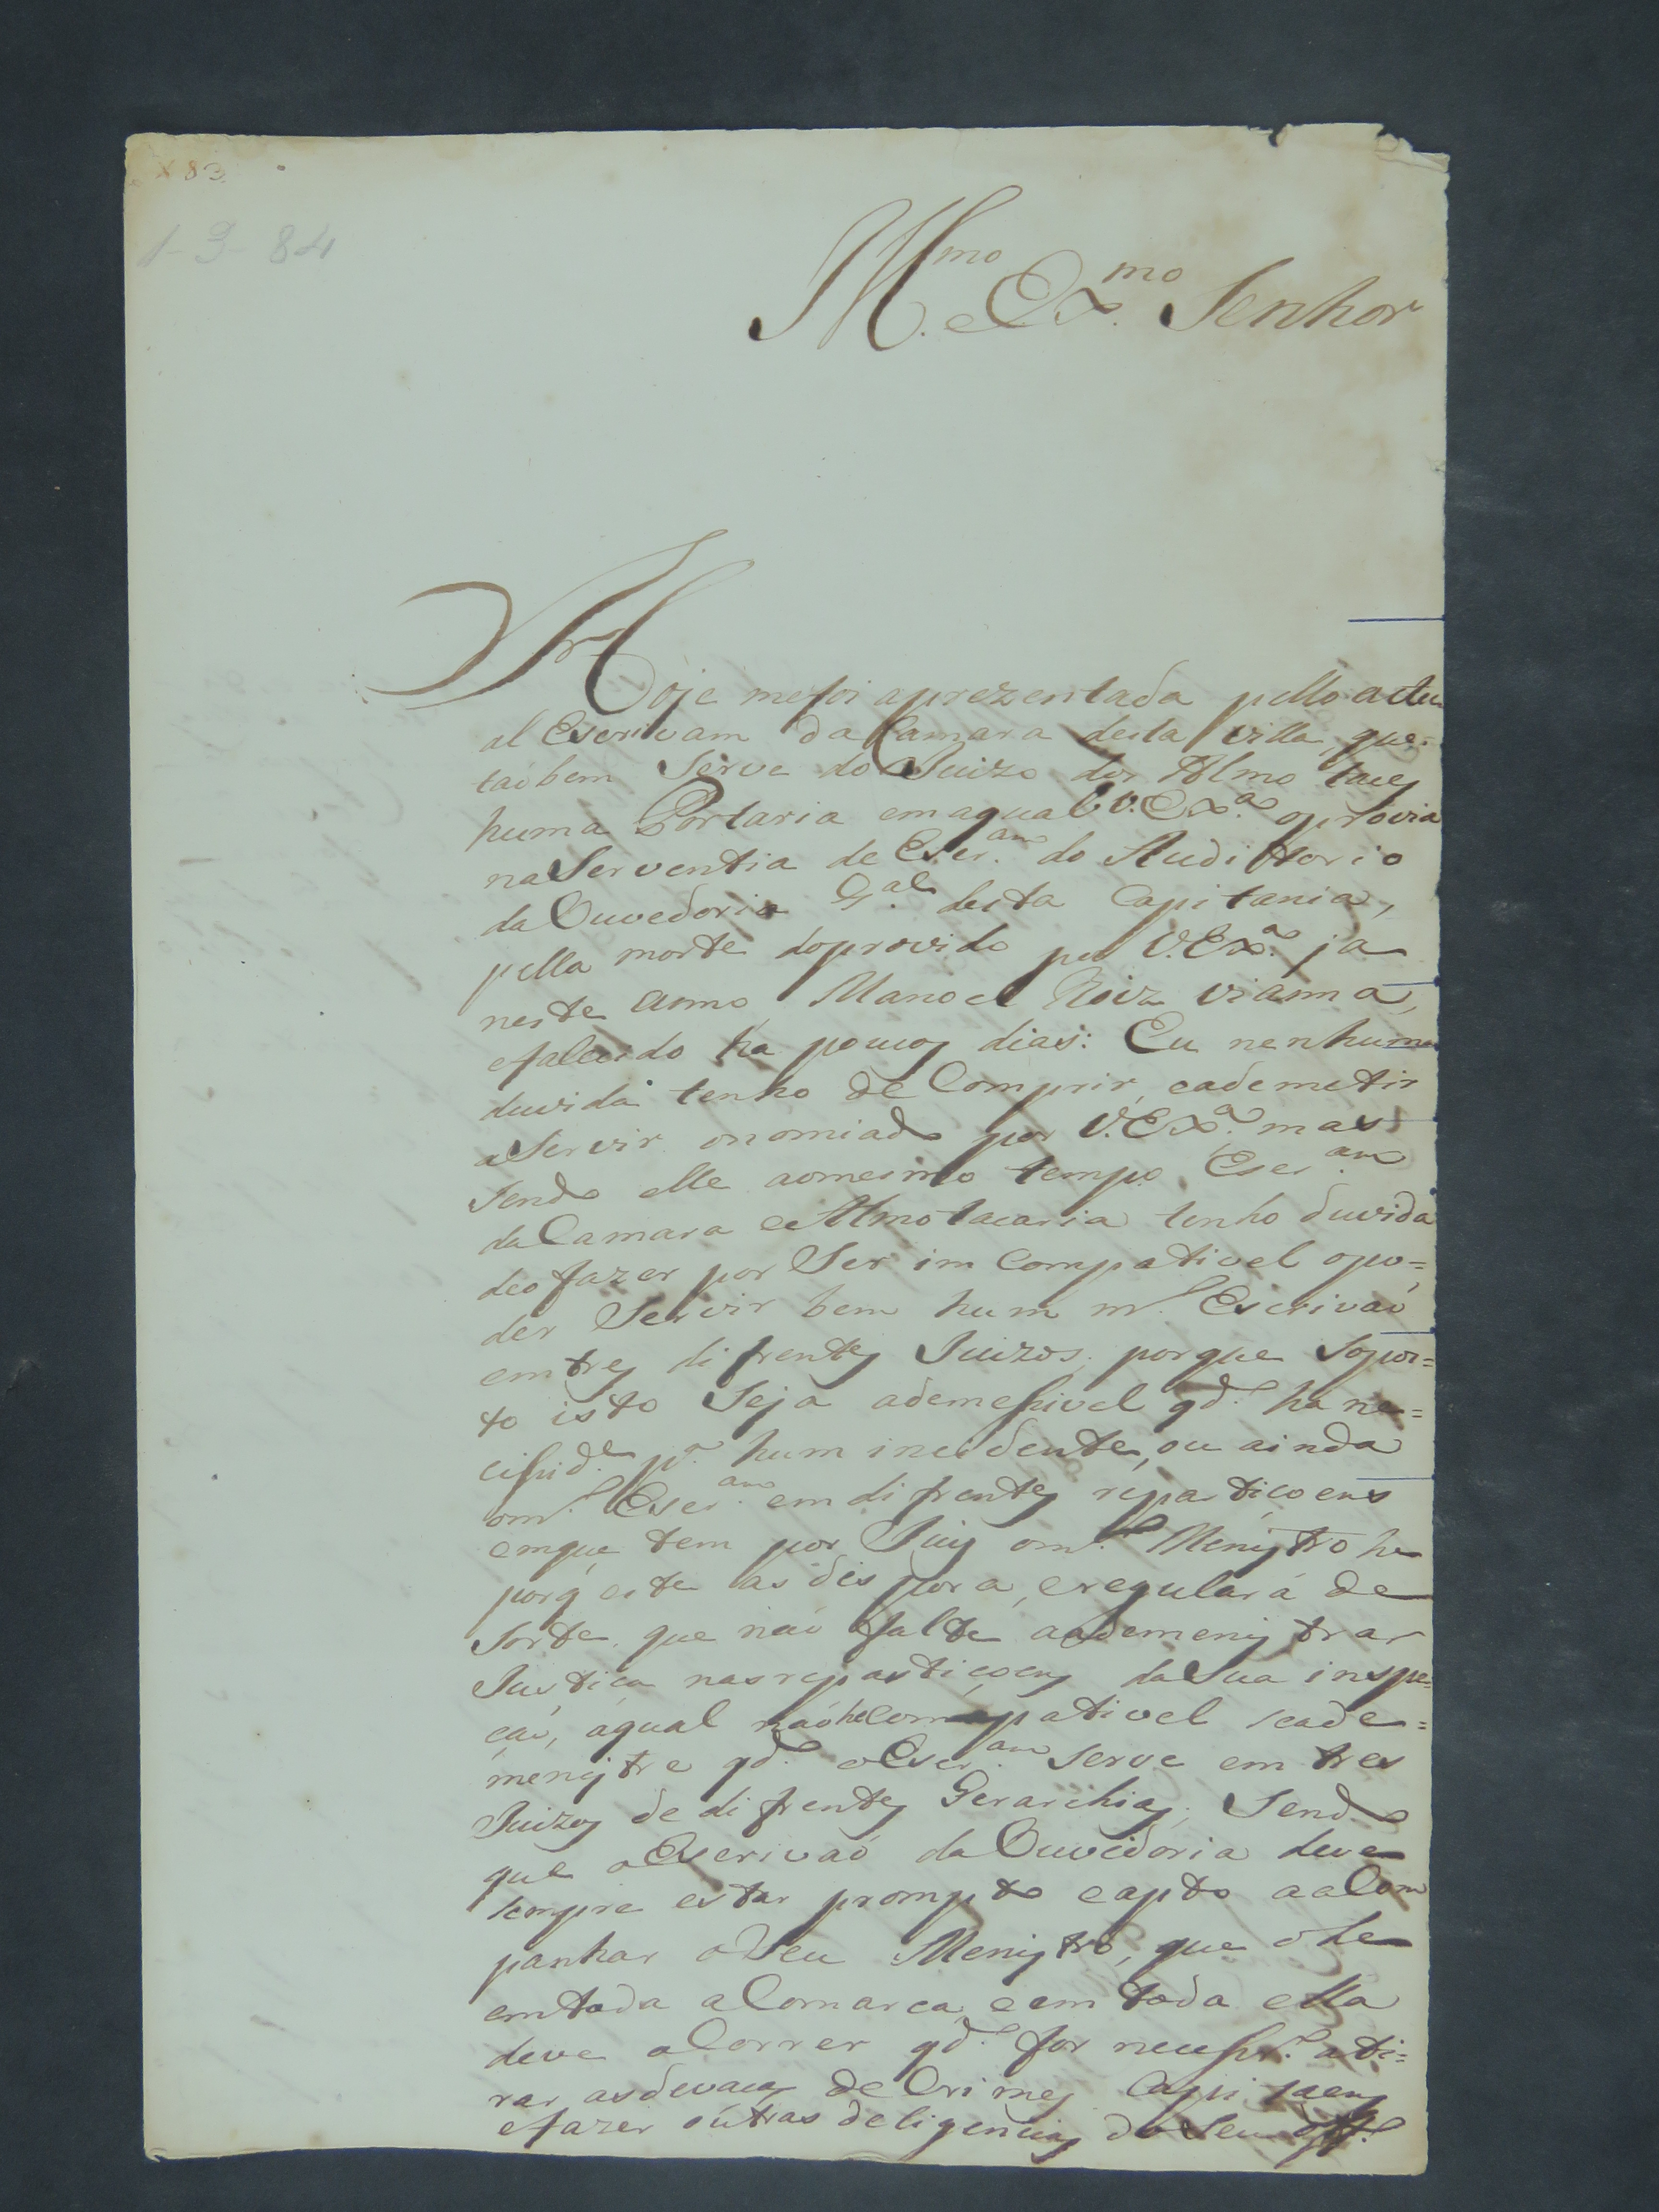 X 83
1-3-84
Ill.mo e Ex.mo Senhor
Hoje mefoi aprezentada pello actu
al Escrivam da Camara desta villa, que
taóbem Serve do Juizo dos Almotaceȷ
huma Portaria emaqual V. Ex.a oprovia
naServentia de Escr.am do Auditorio
da Ouvedoria G.al desta Capitania,
pella morte doprovido por V. Ex.a ja
neste anno, Manoel Roiz vianna,
efalecido ha poucos dias: Eu nenhuma
duvida tenho de Comprir, eademetir
aServir onomiado por V. Ex.a mas
Sendo elle aomesmo tempo Escr.am
da Camara e Almotacaria tenho duvida
deo fazer por Ser imCompativel opo=
der Servir bem hum m.o Escrivaó
emtres difrentes Juizos, porque Sopos=
to isto Seja ademessivel qd.o ha ne=
cessid.e p.a hum incidente, ou ainda
om.o Escr.am em difrentes repartiçoens
emque tem por Juiz om.o Menistro he
porq este as dispora, eregulará de
Sorte que naó falte aademenistrar
Justiça nasrepartiçoens daSua inspe=
çaó, aqual naóheCompativel seade=
menistre qd.o oEscr.am serve em tres
Juizos de difrentes Gerarchias; Sendo
que oEscrivaó da Ouvidoria deve
sempre estar prompto eapto aaCom
panhar oSeu Menistro, que ohe
emtoda aComarca, eem toda ella
deve aCorrer qd.o for necessr.o ati=
rar asdevaças de Crimes Capitaens
efazer outras deligencias doSeu Off.o